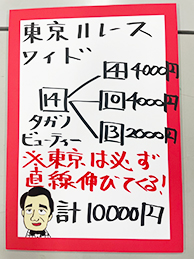 東京11レース
ワイド
14
タガノ
ビューティー
4 4000円
10 4000円
13 2000円
※東京は必ず
直線伸びてる!
計10000円